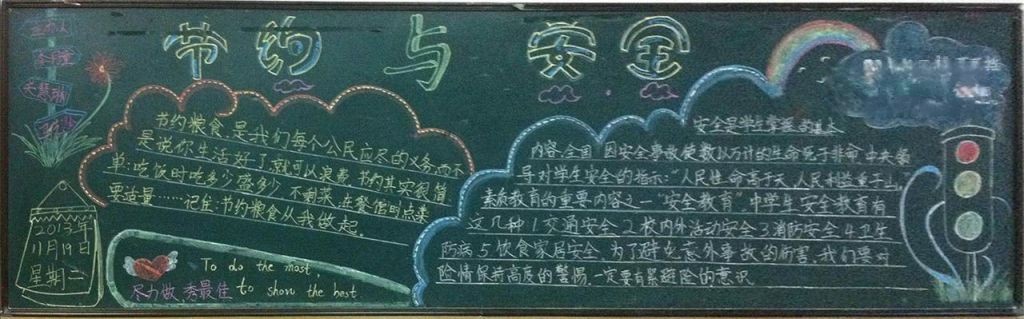 节约与安全
节约粮食,是我们每个公民应尽的义务,而不
是说你生活好了就可以浪费。节约其实很简
单:吃饭时吃多少盛多少,不剩菜,在餐馆时点菜
要适量……记住:节约粮食从我做起。
2013年
11月19日
星期二
To do the most
尽力做 秀最佳 to show the best
安全是学生掌握的基本
内容,全国 因安全事故使数以万计的生命死于非命,中央领
导对学生安全的指示:“人民生命高于天,人民利益重于山。”
素质教育的重要内容之一“安全教育”,中学生安全教育有
这几种 1.交通安全 2.校内外活动安全 3.消防安全 4.卫生
防病 5.饮食家居安全,为了避免意外事故的伤害,我们要对
险情保持高度的警惕,一定要有紧避险的意识